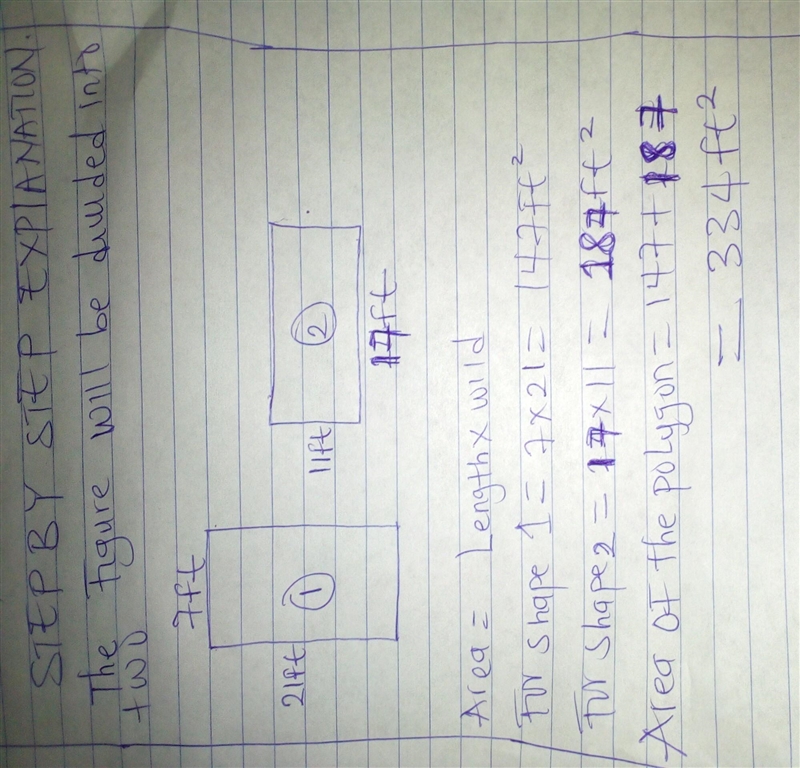 STEP BY STEP EXPLANATION.
The Figure will be divided into
two
7ft
21ft
1
11ft
2
17ft
Area = Length x wild
For shape 1 = 7x21 = 147ft²
For shape 2 = 17x11 = 187ft²
Area of the polygon = 147 + 187
= 334ft²